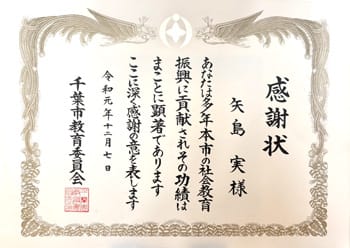 感謝状
矢島 実様
あなたは多年本市の社会教育
振興に貢献されその功績は
まことに顕著であります
ここに深く感謝の意を表します
令和元年十二月七日
千葉市教育委員会